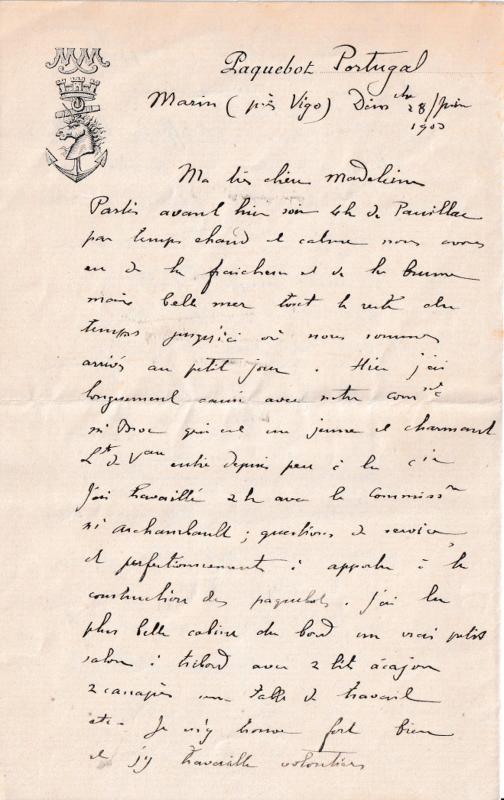 MM
Paquebot Portugal
Marin (près Vigo) Dim che 28/Juin
1903
Ma très chère Madeleine
Partis avant hier soir 4h de Pauillac
par temps chaud et calme nous avons
eu de la fraicheur et de la brume
mais belle mer tout le reste du
temps jusqu'ici où nous sommes
arrivés au petit jour. Hier j'ai
longuement causé avec notre com dt
Mr Broc qui est un jeune et charmant
Lt de Vau entré depuis peu à la Cie
J'ai travaillé 2h avec le Commissre
Mr Archambault ; questions de service
et perfectionnements à apporter à la
construction des paquebots. J'ai la
plus belle cabine du bord un vrai petit
salon à tribord avec 2 lits acajou
2 canapés une table de travail
etc. Je m'y trouve fort bien
et j'y travaille volontiers